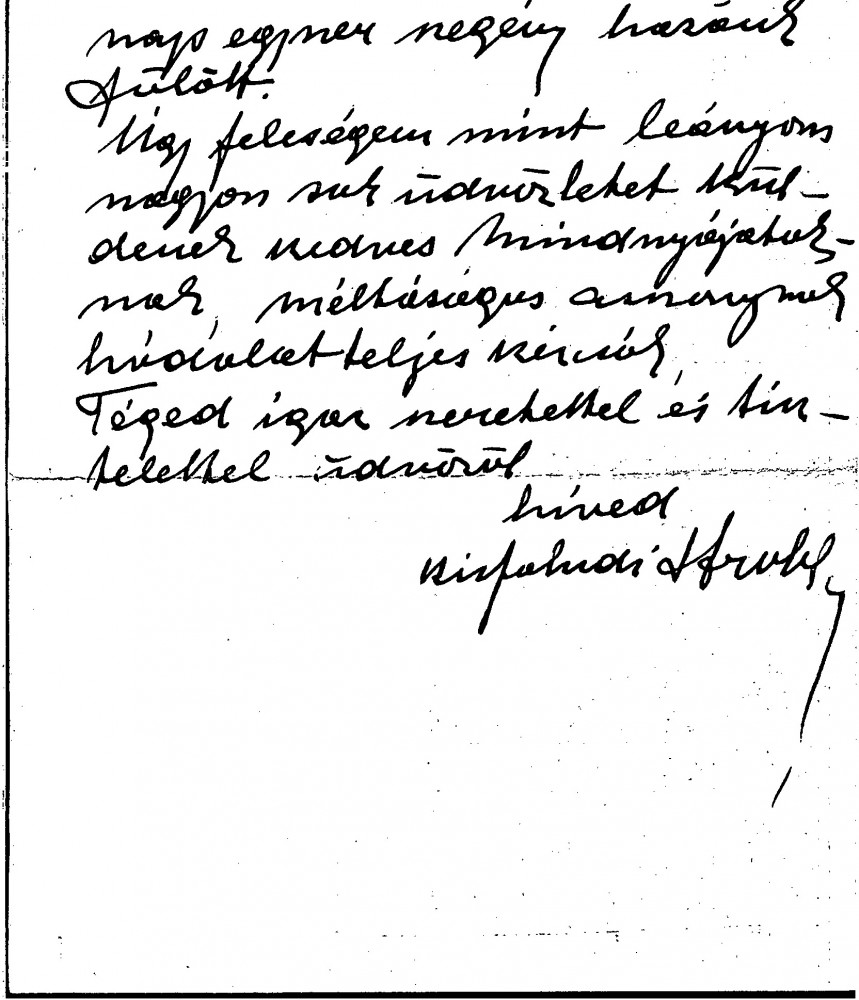 nap egyszer szegény hazánk
fölött.
Úgy feleségem mint leányom
nagyon sok üdvözletet kül-
denek kedves Mindnyájatok-
nak, méltóságos asszonynak
hódolat teljes kézcsók,
Téged igaz szeretettel és tisz-
telettel üdvözöl
híved
Kisfaludi Strobl